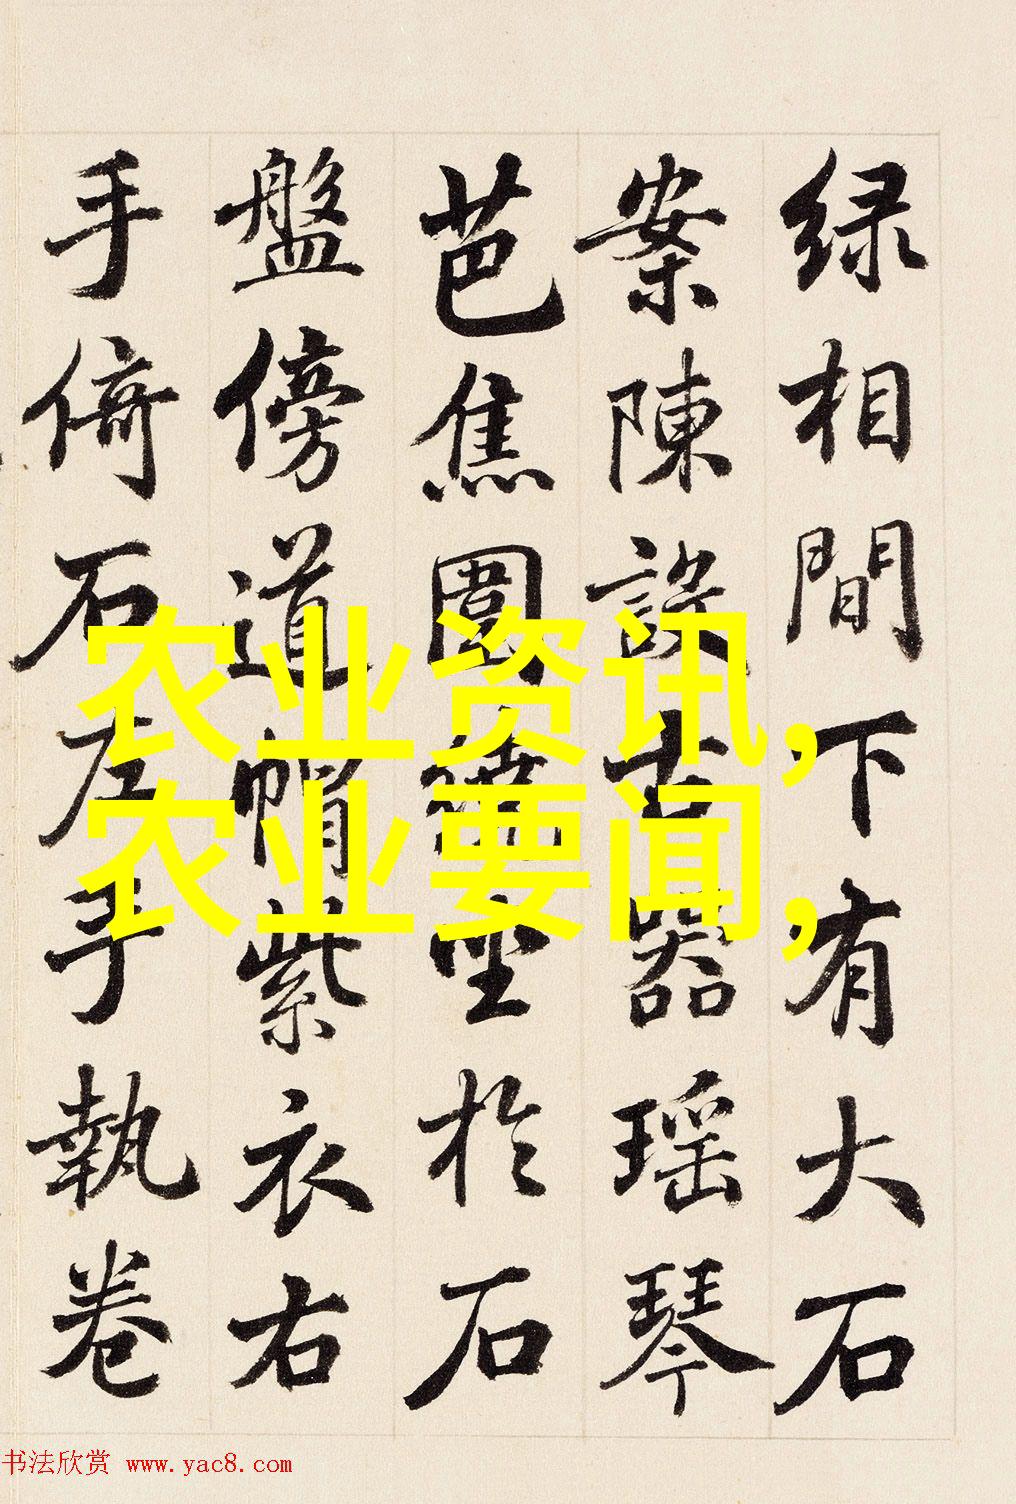 绿相間下有大石
案陳設古器瑶琴
芭焦圍繞坐於石
盤傍道帽紫衣右
手倚石左手執卷
农业资讯,
农业要闻,
书法欣赏 www.yac8.com